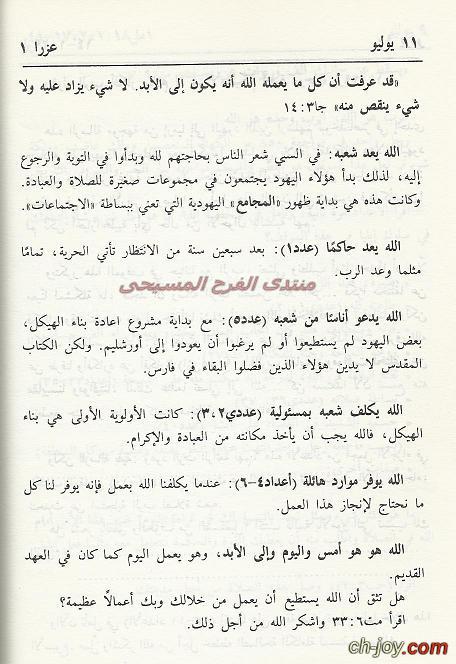 ١١ يوليو
عزرا ١
«قد عرفت أن كل ما يعمله الله أنه يكون إلى الأبد. لا شيء يزاد عليه ولا
شيء ينقص منه» جا٣:١٤
الله يعد شعبه: في السبي شعر الناس بحاجتهم لله وبدأوا في التوبة والرجوع
إليه، لذلك بدأ هؤلاء اليهود يجتمعون في مجموعات صغيرة للصلاة والعبادة.
وكانت هذه هي بداية ظهور «المجامع» اليهودية التي تعني ببساطة «الاجتماعات».
الله يعد حاكمًا (عدد١): بعد سبعين سنة من الانتظار تأتي الحرية، تمامًا
مثلما وعد الرب.
منتدى الفرح المسيحى
الله يدعو أناسًا من شعبه (عدد٥): مع بداية مشروع اعادة بناء الهيكل،
بعض اليهود لم يستطيعوا أو لم يرغبوا أن يعودوا إلى أورشليم. ولكن الكتاب
المقدس لا يدين هؤلاء الذين فضلوا البقاء في فارس.
الله يكلف شعبه بمسئولية (عددي٣،٢): كانت الأولوية الأولى هي بناء
الهيكل، فالله يجب أن يأخذ مكانته من العبادة والإكرام.
الله يوفر موارد هائلة (أعداد٤-٦): عندما يكلفنا الله بعمل فإنه يوفر لنا كل
ما نحتاج لإنجاز هذا العمل.
الله هو هو أمس واليوم وإلى الأبد، وهو يعمل اليوم كما كان في العهد
القديم.
هل تثق أن الله يستطيع أن يعمل من خلالك وبك أعمالاً عظيمة؟
اقرأ مت٦:٣٣ واشكر الله من أجل ذلك.
ch-joy.com